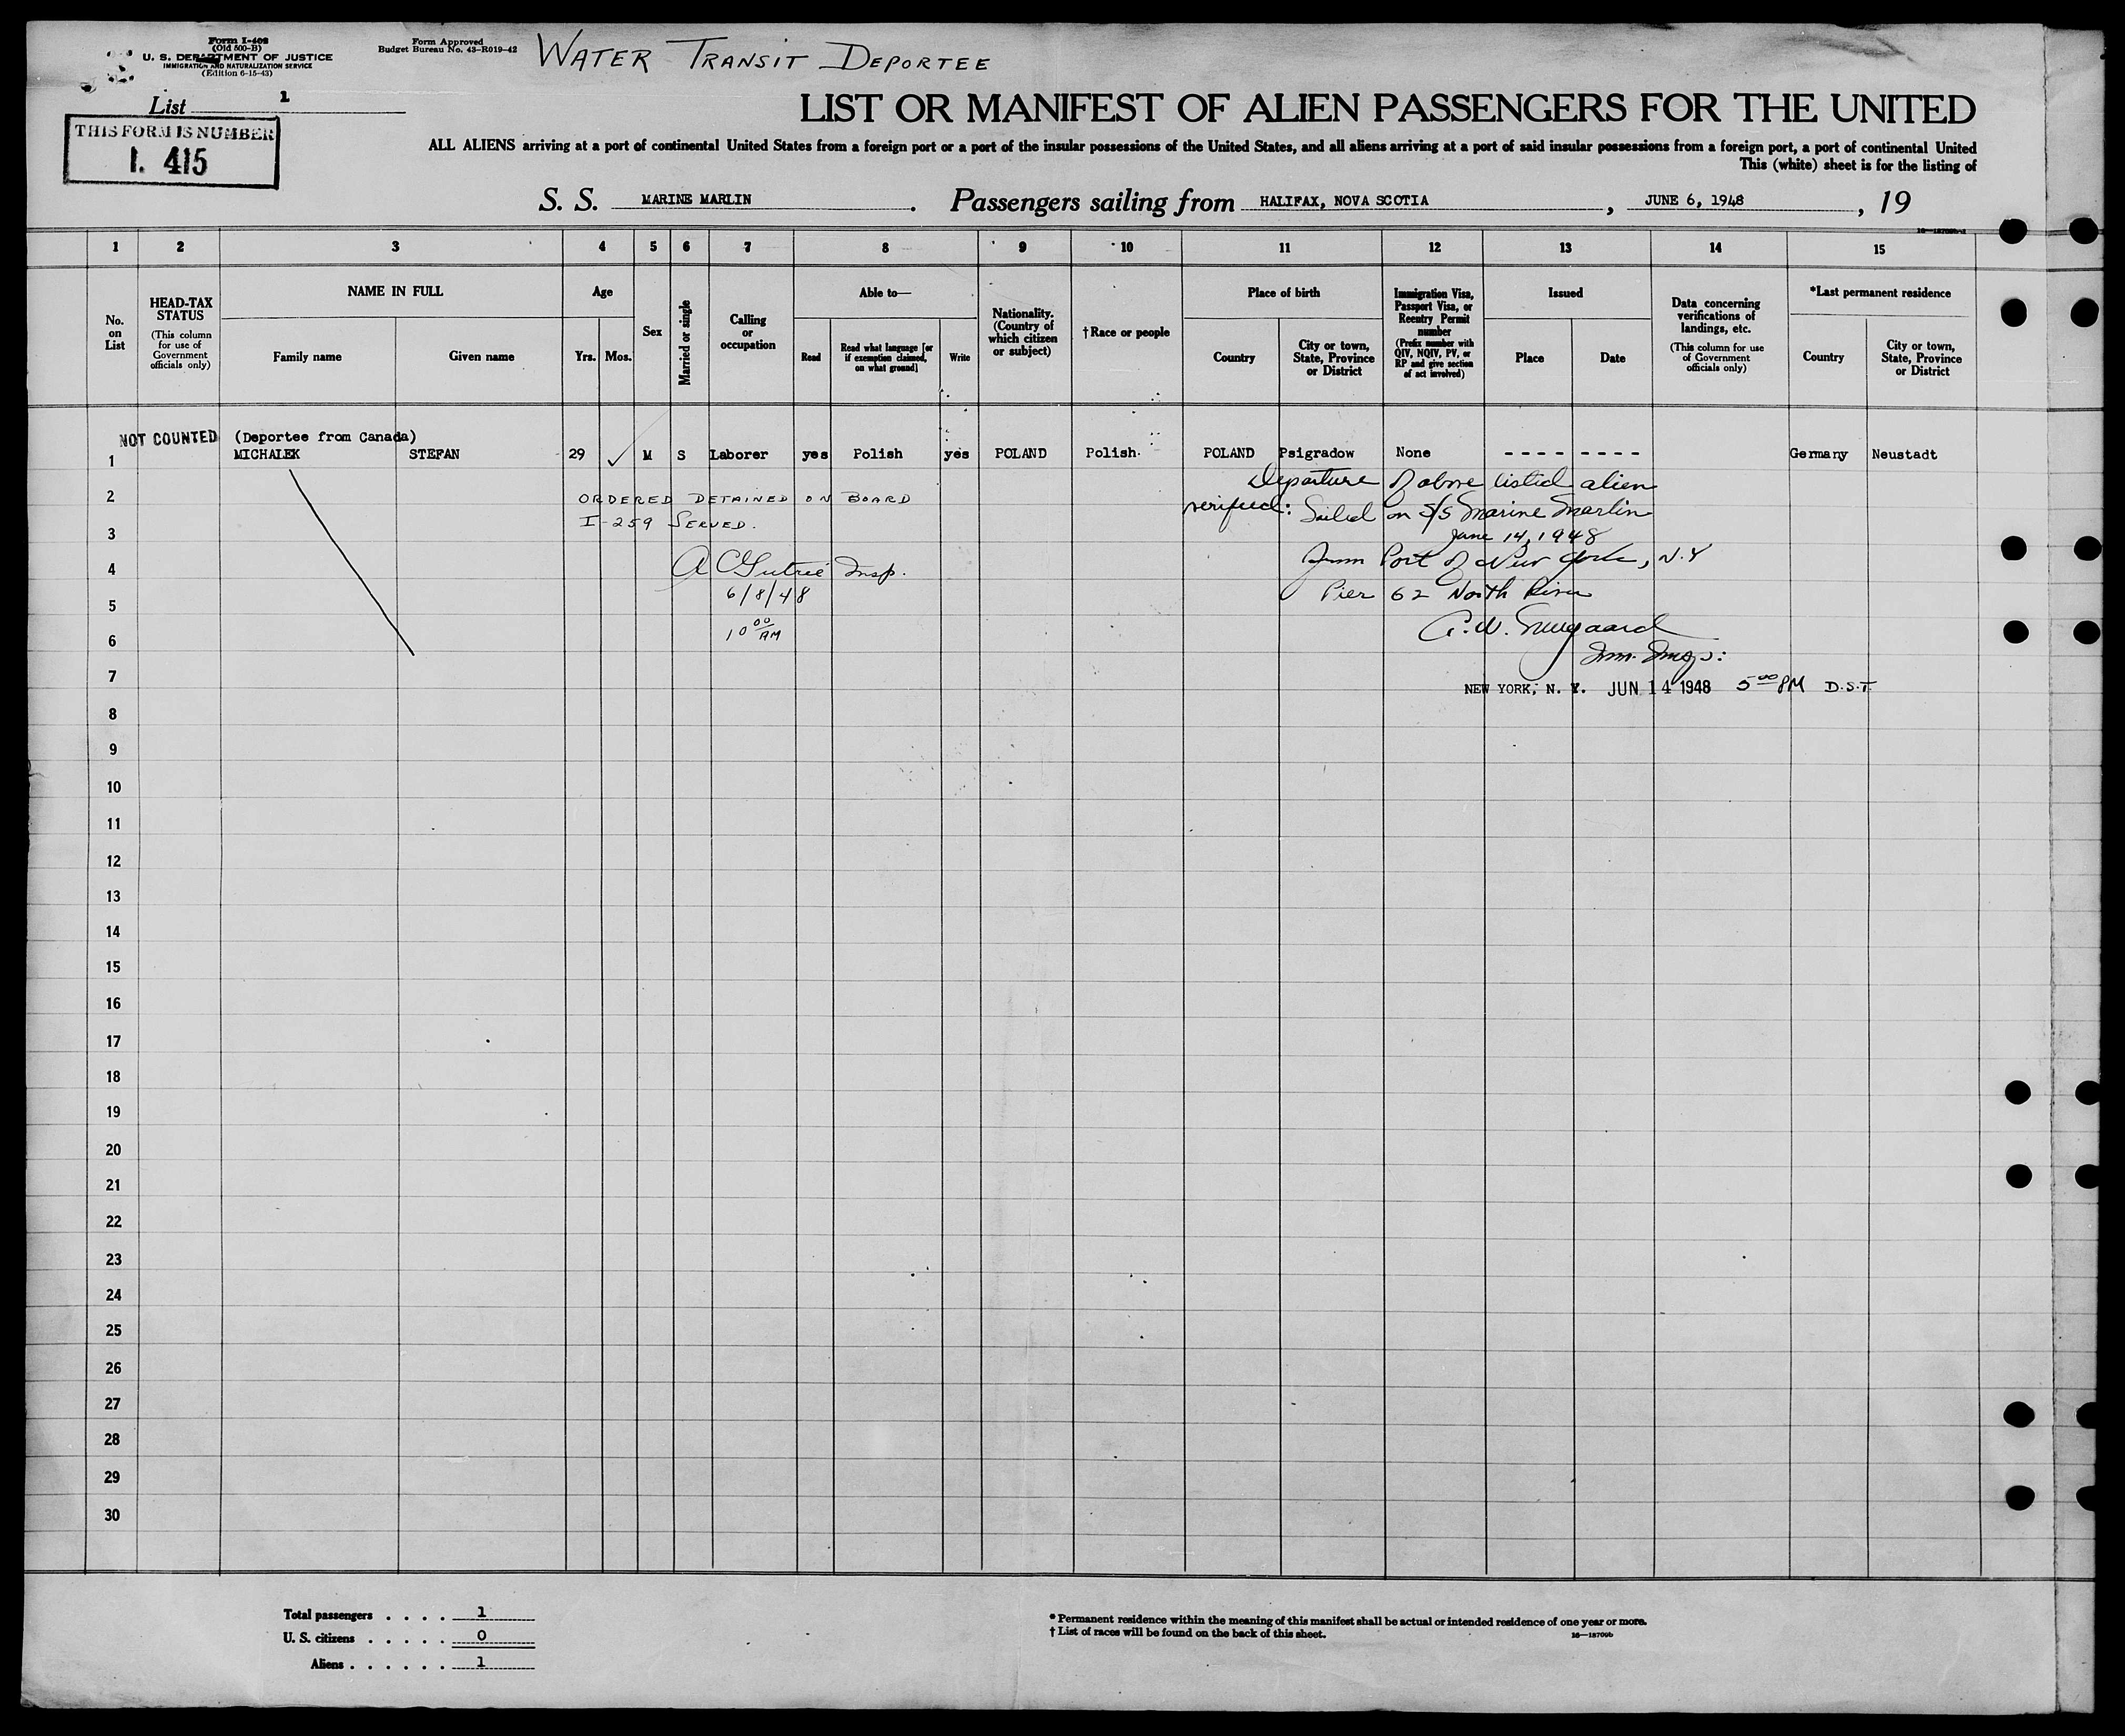 Form I-408
(Old 500-B)
U. S. DEPARTMENT OF JUSTICE
IMMIGRATION AND NATURALIZATION SERVICE
(Edition 6-15-43)
Form Approved
Budget Bureau No. 43-R019-42
WATER TRANSIT DEPORTEE
List 1
THIS FORM IS NUMBER
I. 415
LIST OR MANIFEST OF ALIEN PASSENGERS FOR THE UNITED
ALL ALIENS arriving at a port of continental United States from a foreign port or a port of the insular possessions of the United States, and all aliens arriving at a port of said insular possessions from a foreign port, a port of continental United
This (white) sheet is for the listing of
S. S. MARINE MARLIN. Passengers sailing from HALIFAX, NOVA SCOTIA, JUNE 6, 1948, 19
1 2 3 4 5 6 7 8 9 10 11 12 13 14 15
No. on List
HEAD-TAX STATUS
(This column for use of Government officials only)
NAME IN FULL
Family name
Given name
Age
Yrs.
Mos.
Sex
Married or single
Calling or occupation
Able to—
Read
Read what language [or if exemption claimed, on what ground]
Write
Nationality. (Country of which citizen or subject)
†Race or people
Place of birth
Country
City or town, State, Province or District
Immigration Visa, Passport Visa, or Reentry Permit number
(Prefix number with QIV, NQIV, PV, or RP and give section of act involved)
Issued
Place
Date
Data concerning verifications of landings, etc.
(This column for use of Government officials only)
*Last permanent residence
Country
City or town, State, Province or District
NOT COUNTED (Deportee from Canada)
1 MICHALEK STEFAN 29 ✓ M S Laborer yes Polish yes POLAND Polish. POLAND Psigradow None - - - - - - - - Germany Neustadt
Departure of above listed alien
2 ORDERED DETAINED ON BOARD
verified: Sailed on S/S Marine Marlin
I-259 SERVED.
3 June 14, 1948
from Port of New York, N.Y
4 A C Gutrie Insp.
Pier 62 North River
5 6/8/48
6 10 00 AM
Imm. Insp:
7
NEW YORK, N. Y. JUN 14 1948 5 00 PM D.S.T.
8
9
10
11
12
13
14
15
16
17
18
19
20
21
22
23
24
25
26
27
28
29
30
Total passengers . . . . 1
U. S. citizens . . . . . 0
Aliens . . . . . . 1
* Permanent residence within the meaning of this manifest shall be actual or intended residence of one year or more.
† List of races will be found on the back of this sheet.
16—18709b